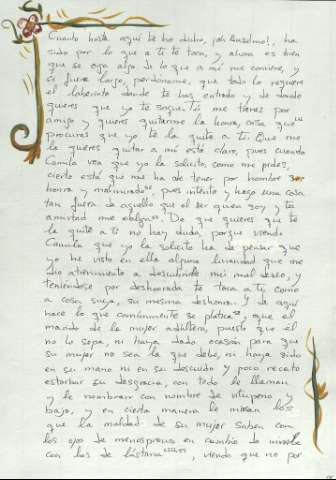 Cuanto hasta aquí te he dicho, ¡oh Anselmo!, ha
sido por lo que a ti te toca, y ahora es bien
que se oiga algo de lo que a mí me conviene, y
si fuere largo, perdóname, que todo lo requiere
el laberinto donde te has entrado y de donde
quieres que yo te saque. Tú me tienes por
amigo y quieres quitarme la honra, cosa que
procuras que yo te la quite a ti. Que me
la quieres quitar a mí está claro, pues cuando
Camila vea que yo la solicito, como me pides,
cierto está que me ha de tener por hombre sin
honra y malmirado, pues intento y hago una cosa
tan fuera de aquello que el ser quien soy y tu
amistad me obliga. De que quieres que te
la quite a ti no hay duda, porque viendo
Camila que yo la solicito ha de pensar que
yo he visto en ella alguna liviandad que me
dio atrevimiento a descubrirle mi mal deseo, y
teniéndose por deshonrada te toca a ti, como
a cosa suya, su mesma deshonra. Y de aquí
nace lo que comúnmente se platica, que el
marido de la mujer adúltera, puesto que él
no lo sepa, ni haya dado ocasión para que
su mujer no sea la que debe, ni haya sido
en su mano ni en su descuido y poco recato
estorbar su desgracia, con todo le llaman
y le nombran con nombre de vituperio y
bajo, y en cierta manera le miran los
que la maldad de su mujer saben con
los ojos de menosprecio en cambio de mirarle
con los de lástima, viendo que no por